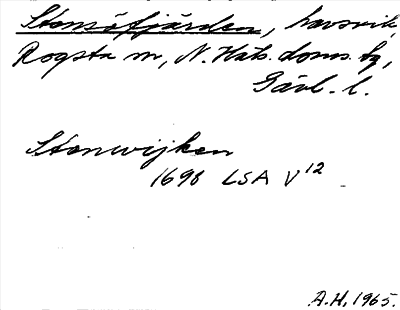 Stensöfjärden, havsvik,
Rogsta sn, N. Häls. doms. bg,
Gävl. l.
Stenwijken
1698 LSA V12
A.H. 1965.